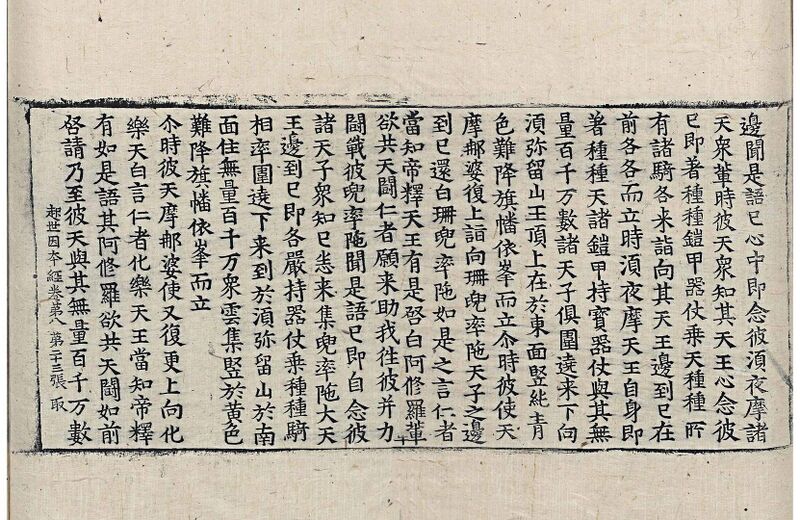 邊聞是語已心中即念彼湏夜摩諸
天衆䓁時彼天衆知其天王心念彼
已即著種種鎧甲器仗乗天種種所
有諸騎各来詣向其天王邊到已在
前各各而立時湏夜摩天王自身即
著種種天諸鎧甲持寶器仗與其無
量百千万數諸天子俱圍遶来下向
湏弥留山王頂上在於東面竪純青
色難降旗幡依峯而立尒時彼使天
摩𨚗婆復上詣向珊兜率陁天子之邊
到已還白珊兜率陁如是之言仁者
當知帝釋天王有是啓白阿修羅輩
欲共天鬪仁者願来助我徃彼并力
鬪戰彼兜率陁聞是語已即自念彼
諸天子衆知已悉来集兜率陁大天
王邊到已即各嚴持器仗乗種種騎
相率圍遶下来到於湏弥留山於南
面住無量百千万衆雲集竪於黄色
難降旗幡依峯而立
尒時彼天摩𨚗婆使又復更上向化
樂天白言仁者化樂天王當知帝釋
起世因本經卷第八 第二十三張 取
有如是語其阿修羅欲共天鬪如前
啓請乃至彼天與其無量百千万數